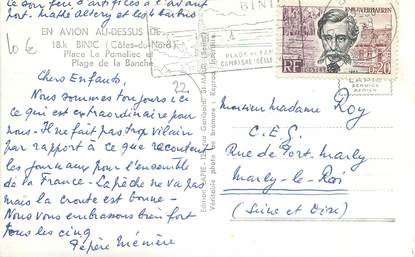 le soir feu d'artifices à l'avant
port. matte Altery et les 4 barbus
10 €
EN AVION AU-DESSUS DE...
18.k BINIC (Côtes-du-Nord)
Place Le Pomellec et
Plage de la Banche
22.
Chers Enfants,
Nous sommes toujours ici
ce qui est extraordinaire pour
nous - Il ne fait pas trop vilain
par rapport à ce que racontent
les journaux pour l'ensemble
de la France - La pêche ne va pas
mais la croute est bonne -
Nous vous embrassons bien fort
tous les cinq
Pépère Mémère
Édition LAPIE
St-MAUR
Véritable photo au Bromure - Reprod. interdite
BINIC
PLAGE
CAMPAGNE IDÉALE
E. VERHAEREN
RF
0,20
LAPIE
SERVICE
AÉRIEN
Monsieur Madame Roy
C.E.G.
Rue de Port-Marly
Marly-le-Roi
(Seine et Oise)